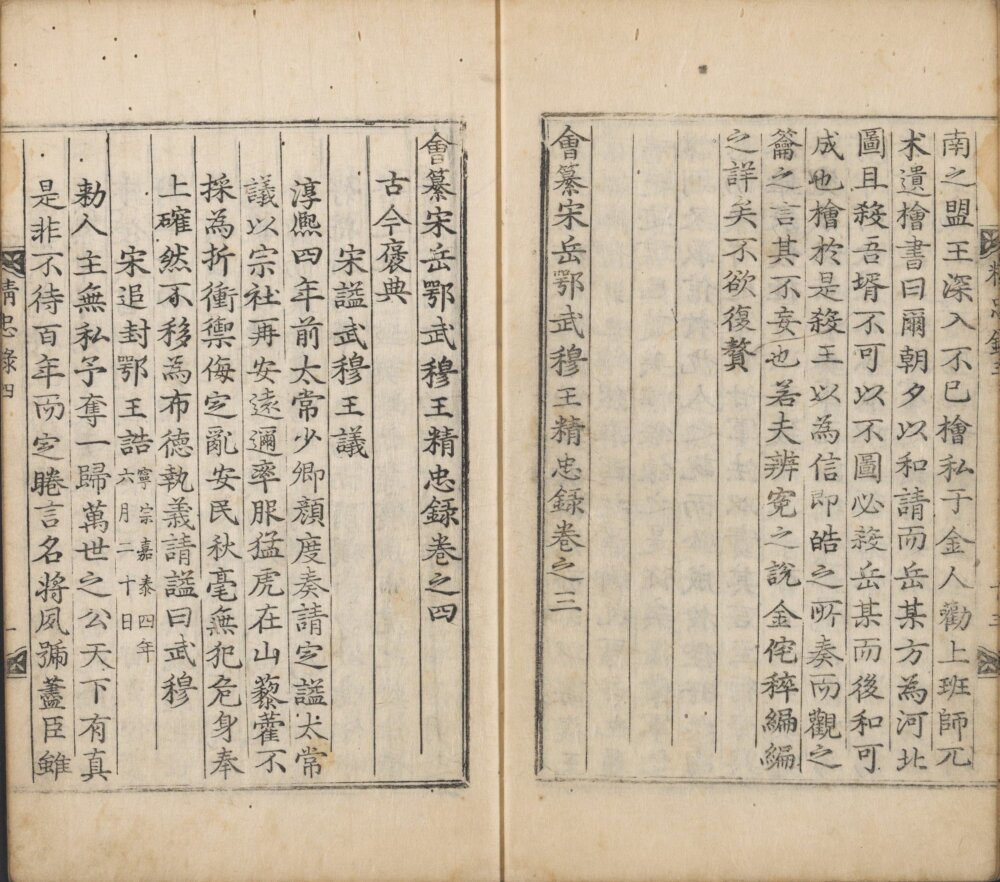 南之盟王深入不已檜私于金人勸上班師兀
术遺檜書曰爾朝夕以和請而岳某方為河北
圖且殺吾壻不可以不圖必殺岳某而後和可
成也檜於是殺王以為信即皓之所奏而觀之
籥之言其不妄也若夫辨寃之說金佗稡編編
之詳矣不欲復贅
會纂宋岳鄂武穆王精忠録卷之三
會纂宋岳鄂武穆王精忠録卷之四
古今褒典
宋諡武穆王議
淳熙四年前太常少卿顔度奏請定諡太常
議以宗社再安遠邇率服猛虎在山藜藿不
採為折衝禦侮定亂安民秋毫無犯危身奉
上確然不移為布德執義請諡曰武穆
宋追封鄂王誥寧宗嘉泰四年
六月二十日
勑人主無私予奪一歸萬世之公天下有真
是非不待百年而定睠言名將夙號藎臣雖
精忠録四
一